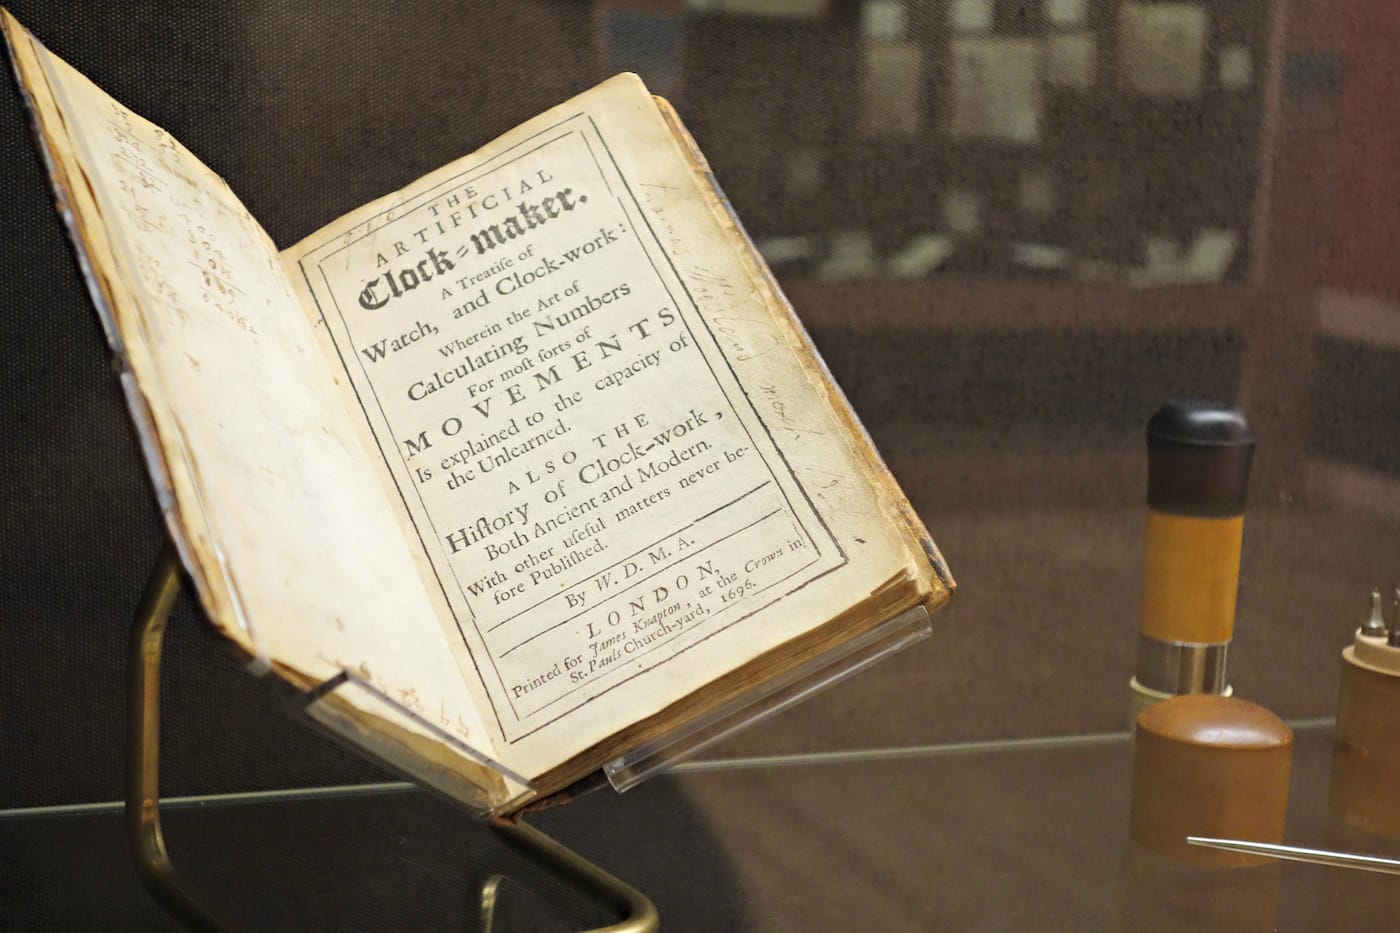 THE
ARTIFICIAL
Clock-maker.
A Treatiſe of
Watch, and Clock-work:
Wherein the Art of
Calculating Numbers
For moſt ſorts of
MOVEMENTS
Is explained to the capacity of
the Unlearned.
ALSO THE
Hiſtory of Clock-work,
Both Ancient and Modern.
With other uſeful matters never be-
fore Publiſhed.
By W. D. M. A.
LONDON,
Printed for James Knapton, at the Crown in
St. Pauls Church-yard, 1696.